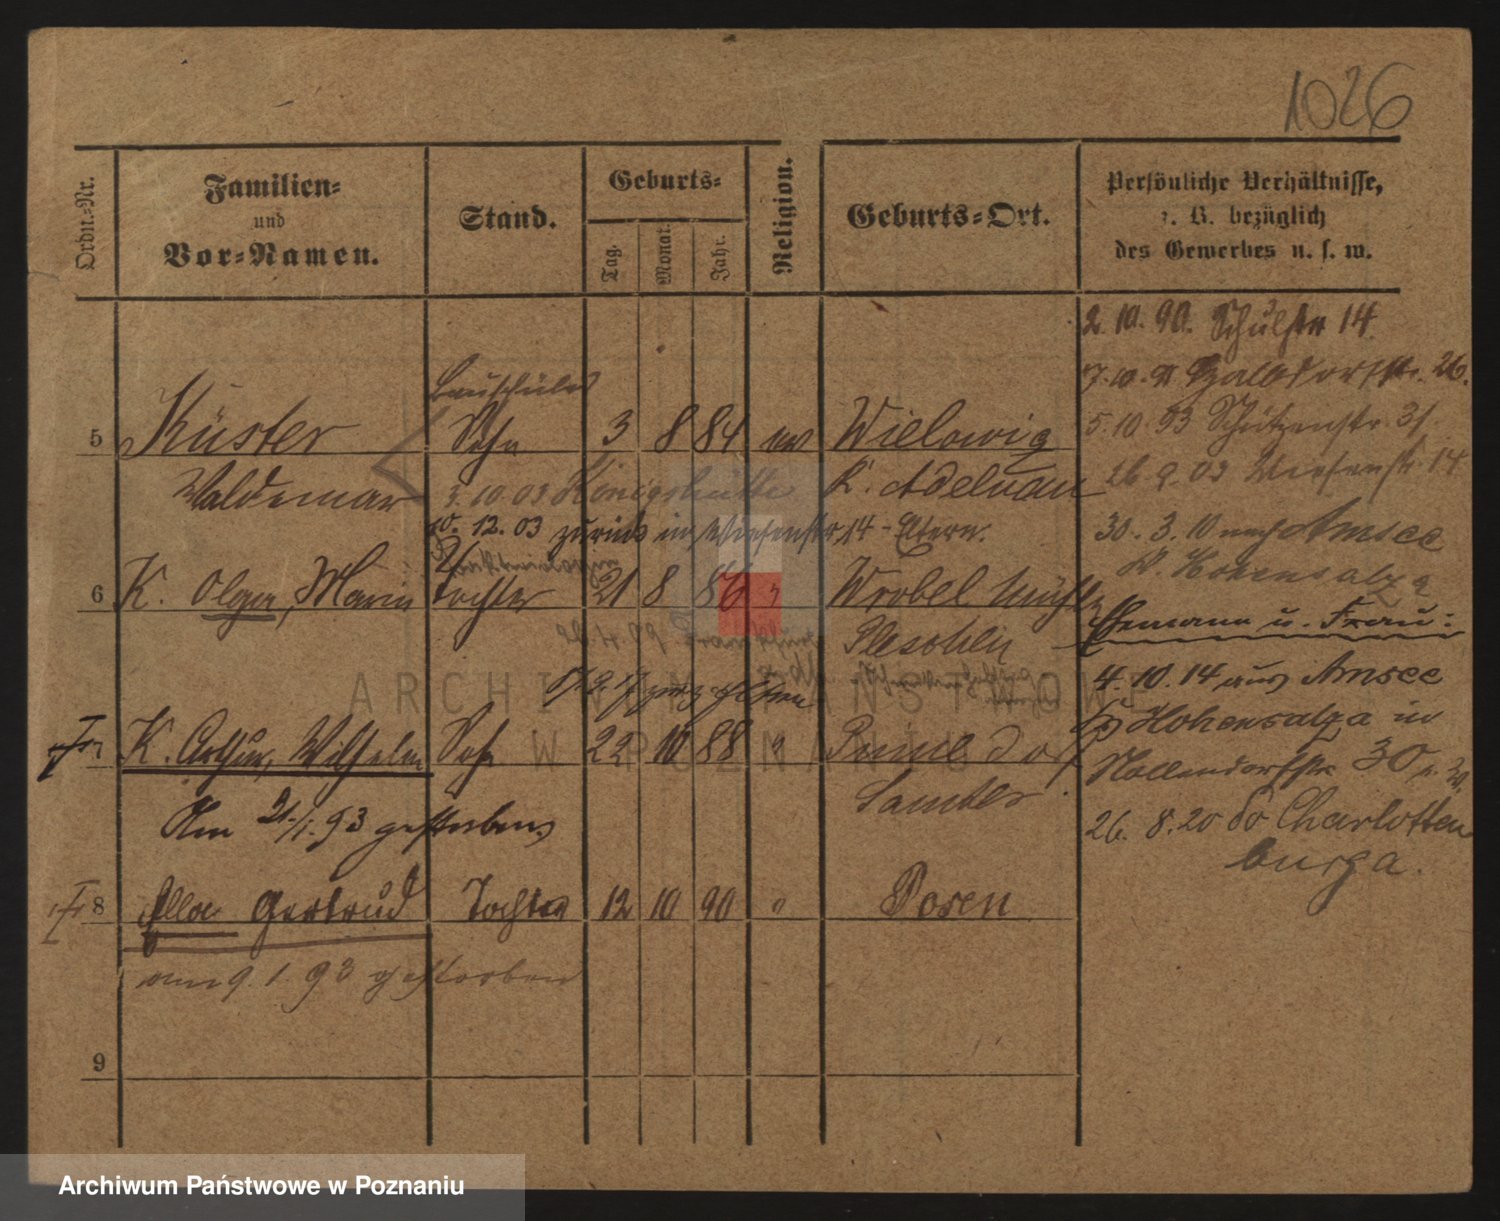 1026
Ordn.-Nr.
Familien-
und
Vor-Namen.
Stand.
Geburts-
Tag.
Monat.
Jahr.
Religion.
Geburts-Ort.
Persönliche Verhältnisse,
z. B. bezüglich
des Gewerbes u. s. w.
2. 10. 90. Schulstr 14.
26.
Bauschüler
5 Küster Sohn 3 8 84 ev Wielowig
5. 10. 93 Schützenstr. 31.
Waldemar 3. 10. 03 Königshütte K. Adelnau
26. 9. 03 Wiesenstr. 14
10. 12. 03 zurück in Wiesenstr. 14 - Eltern.
30. 3. 10 nach Amsee
K. Hohensalza
6 K. Olga, Marie Tochter 21 8 86 " Wrobel Mühle
Pleschen
Ehemann u. Frau:
4. 10. 14 aus Amsee
Hohensalza in
7 K. Arthur, Wilhelm Sohn 22 10 88 "
Nollendorfstr 30
Samter.
Am 21./1. 93 gestorben
26. 8. 20 do Charlotten
burg a.
8 Ella Gertrud Tochter 12 10 90 " Posen
am 9. 1. 93 gestorben
9
ARCHIWUM PAŃSTWOWE
W POZNANIU
Archiwum Państwowe w Poznaniu